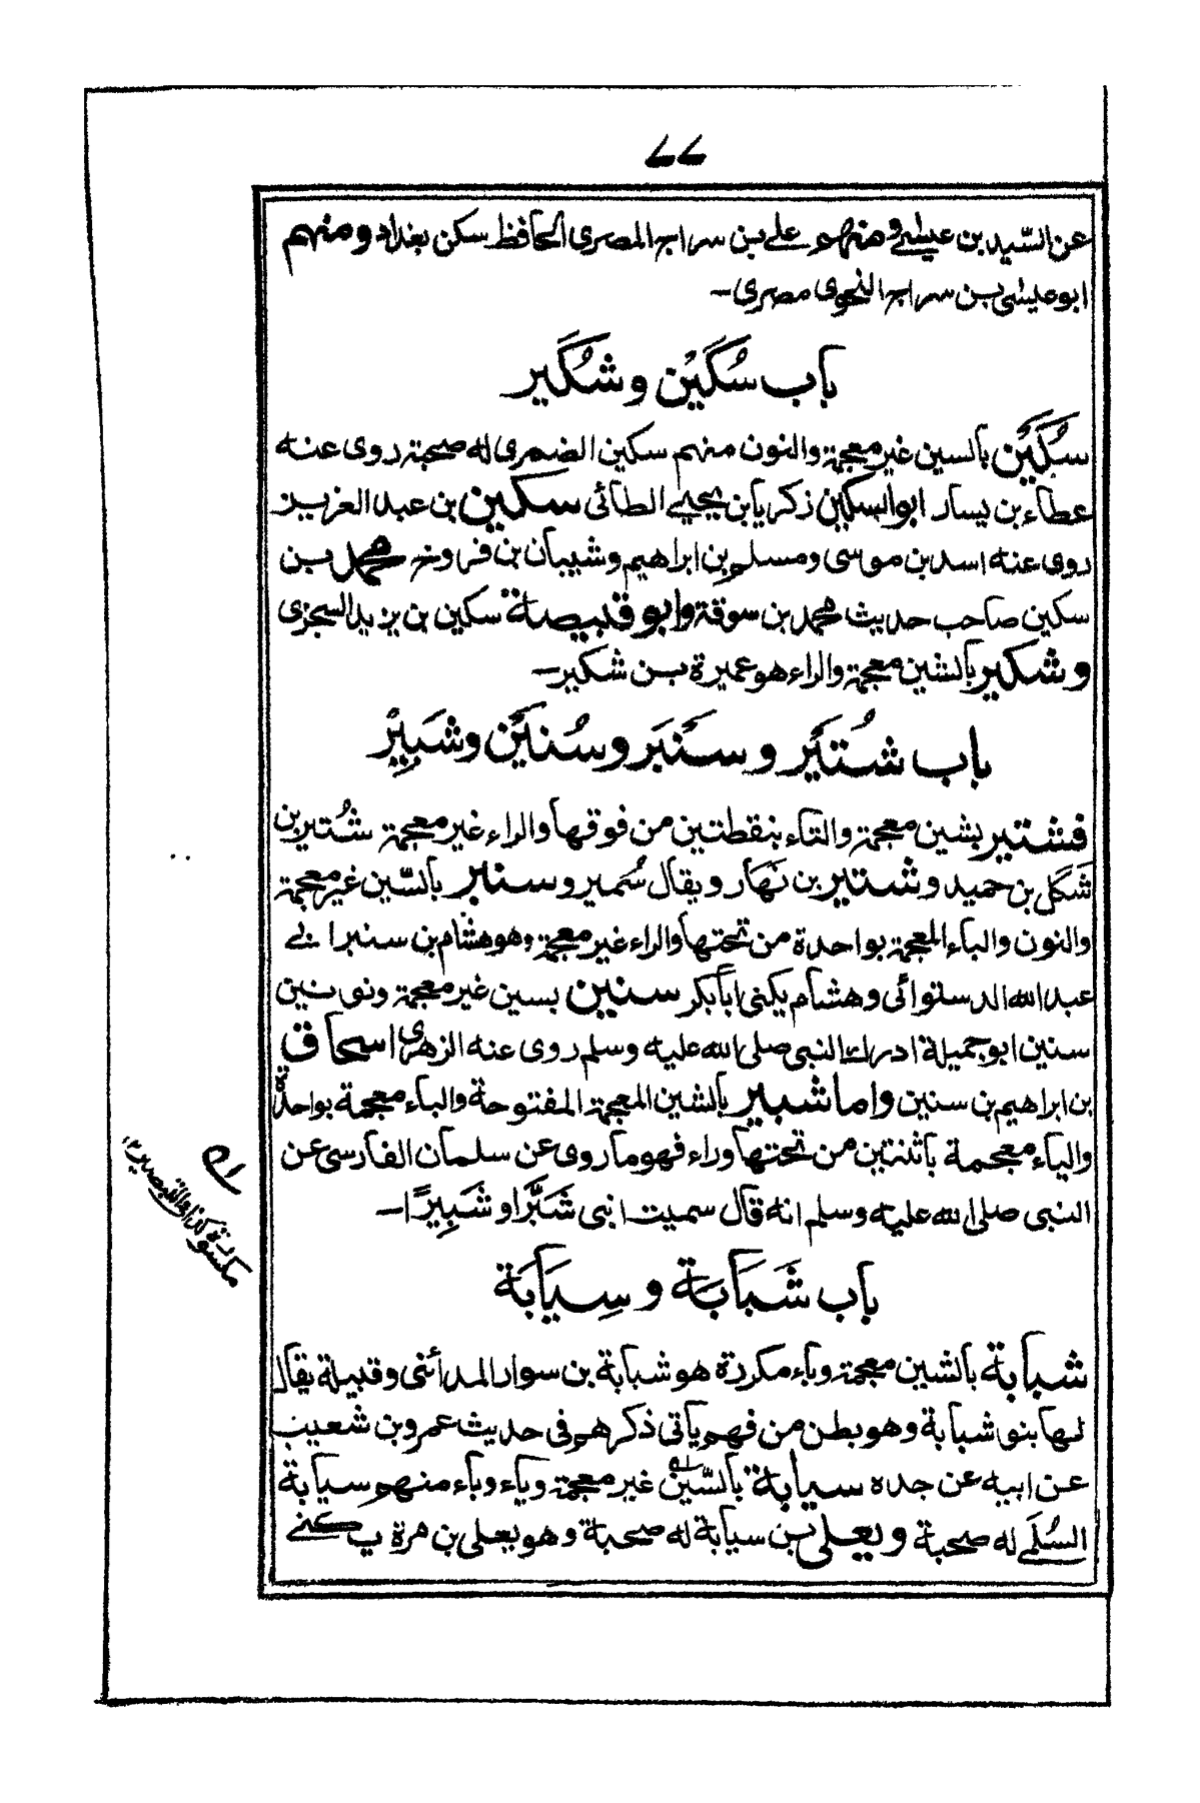 ٧٧
عن السّيد بن عيسى ومنهم على بن سراج المصرى الحافظ سكن بغداد ومنهم
ابو عيسى بن سراج النحوى مصرى۔
باب سُكَيْن وشُكَير
سُكَيْن بالسين غير معجمة والنون منهم سكين الضمرى له صحبة روى عنه
عطاء بن يسار ابو السكين زكريا بن يحيى الطائى سكين بن عبد العزيز
روى عنه اسد بن موسى ومسلم بن ابراهيم وشيبان بن فروخ محمد بن
سكين صاحب حديث محمد بن سوقة وابو قبيصة سكين بن يزيد السجزى
وشكير بالشين معجمة والراء هو عميرة بن شكير۔
باب شُتَيْر وسَنْبَر وسُنَيْن وشَبِيْر
فشتير بشين معجمة والتاء بنقطتين من فوقها والراء غير معجمة شُتير بن
شَكَل بن حميد وشتير بن نَهَار ويقال سُمير وسنبر بالسّين غير معجمة
والنون والباء المعجمة بواحدة من تحتها والراء غير معجمة وهو هشام بن سنبر ابى
عبد الله الدستوائى وهشام يكنى ابا بكر سنين بسين غير معجمة ونونين
سنين ابو جميلة ادرك النبى صلى الله عليه وسلم روى عنه الزهرى اسحاق
بن ابراهيم بن سنين واما شبير بالشين المعجمة المفتوحة والباء معجمة بواحدة
والياء معجمة باثنتين من تحتها وراء فهو ما روى عن سلمان الفارسى عن
النبى صلى الله عليه وسلم انه قال سميت ابنى شَبَّرًا وشَبِيرًا۔
باب شَبَابَة وسِيَابَة
شبابة بالشين معجمة وباء مكررة هو شبابة بن سوار المدائنى وقبيلة يقال
لها بنو شبابة وهو بطن من فهم ياتى ذكرهم فى حديث عمرو بن شعيب
عن ابيه عن جده سيابة بالسّين غير معجمة وياء وباء منهم سيابة
السُلَمى له صحبة ويعلى بن سيابة له صحبة وهو يعلى بن مرة يكنى
مكسورة كذا فى التبصير ١٢